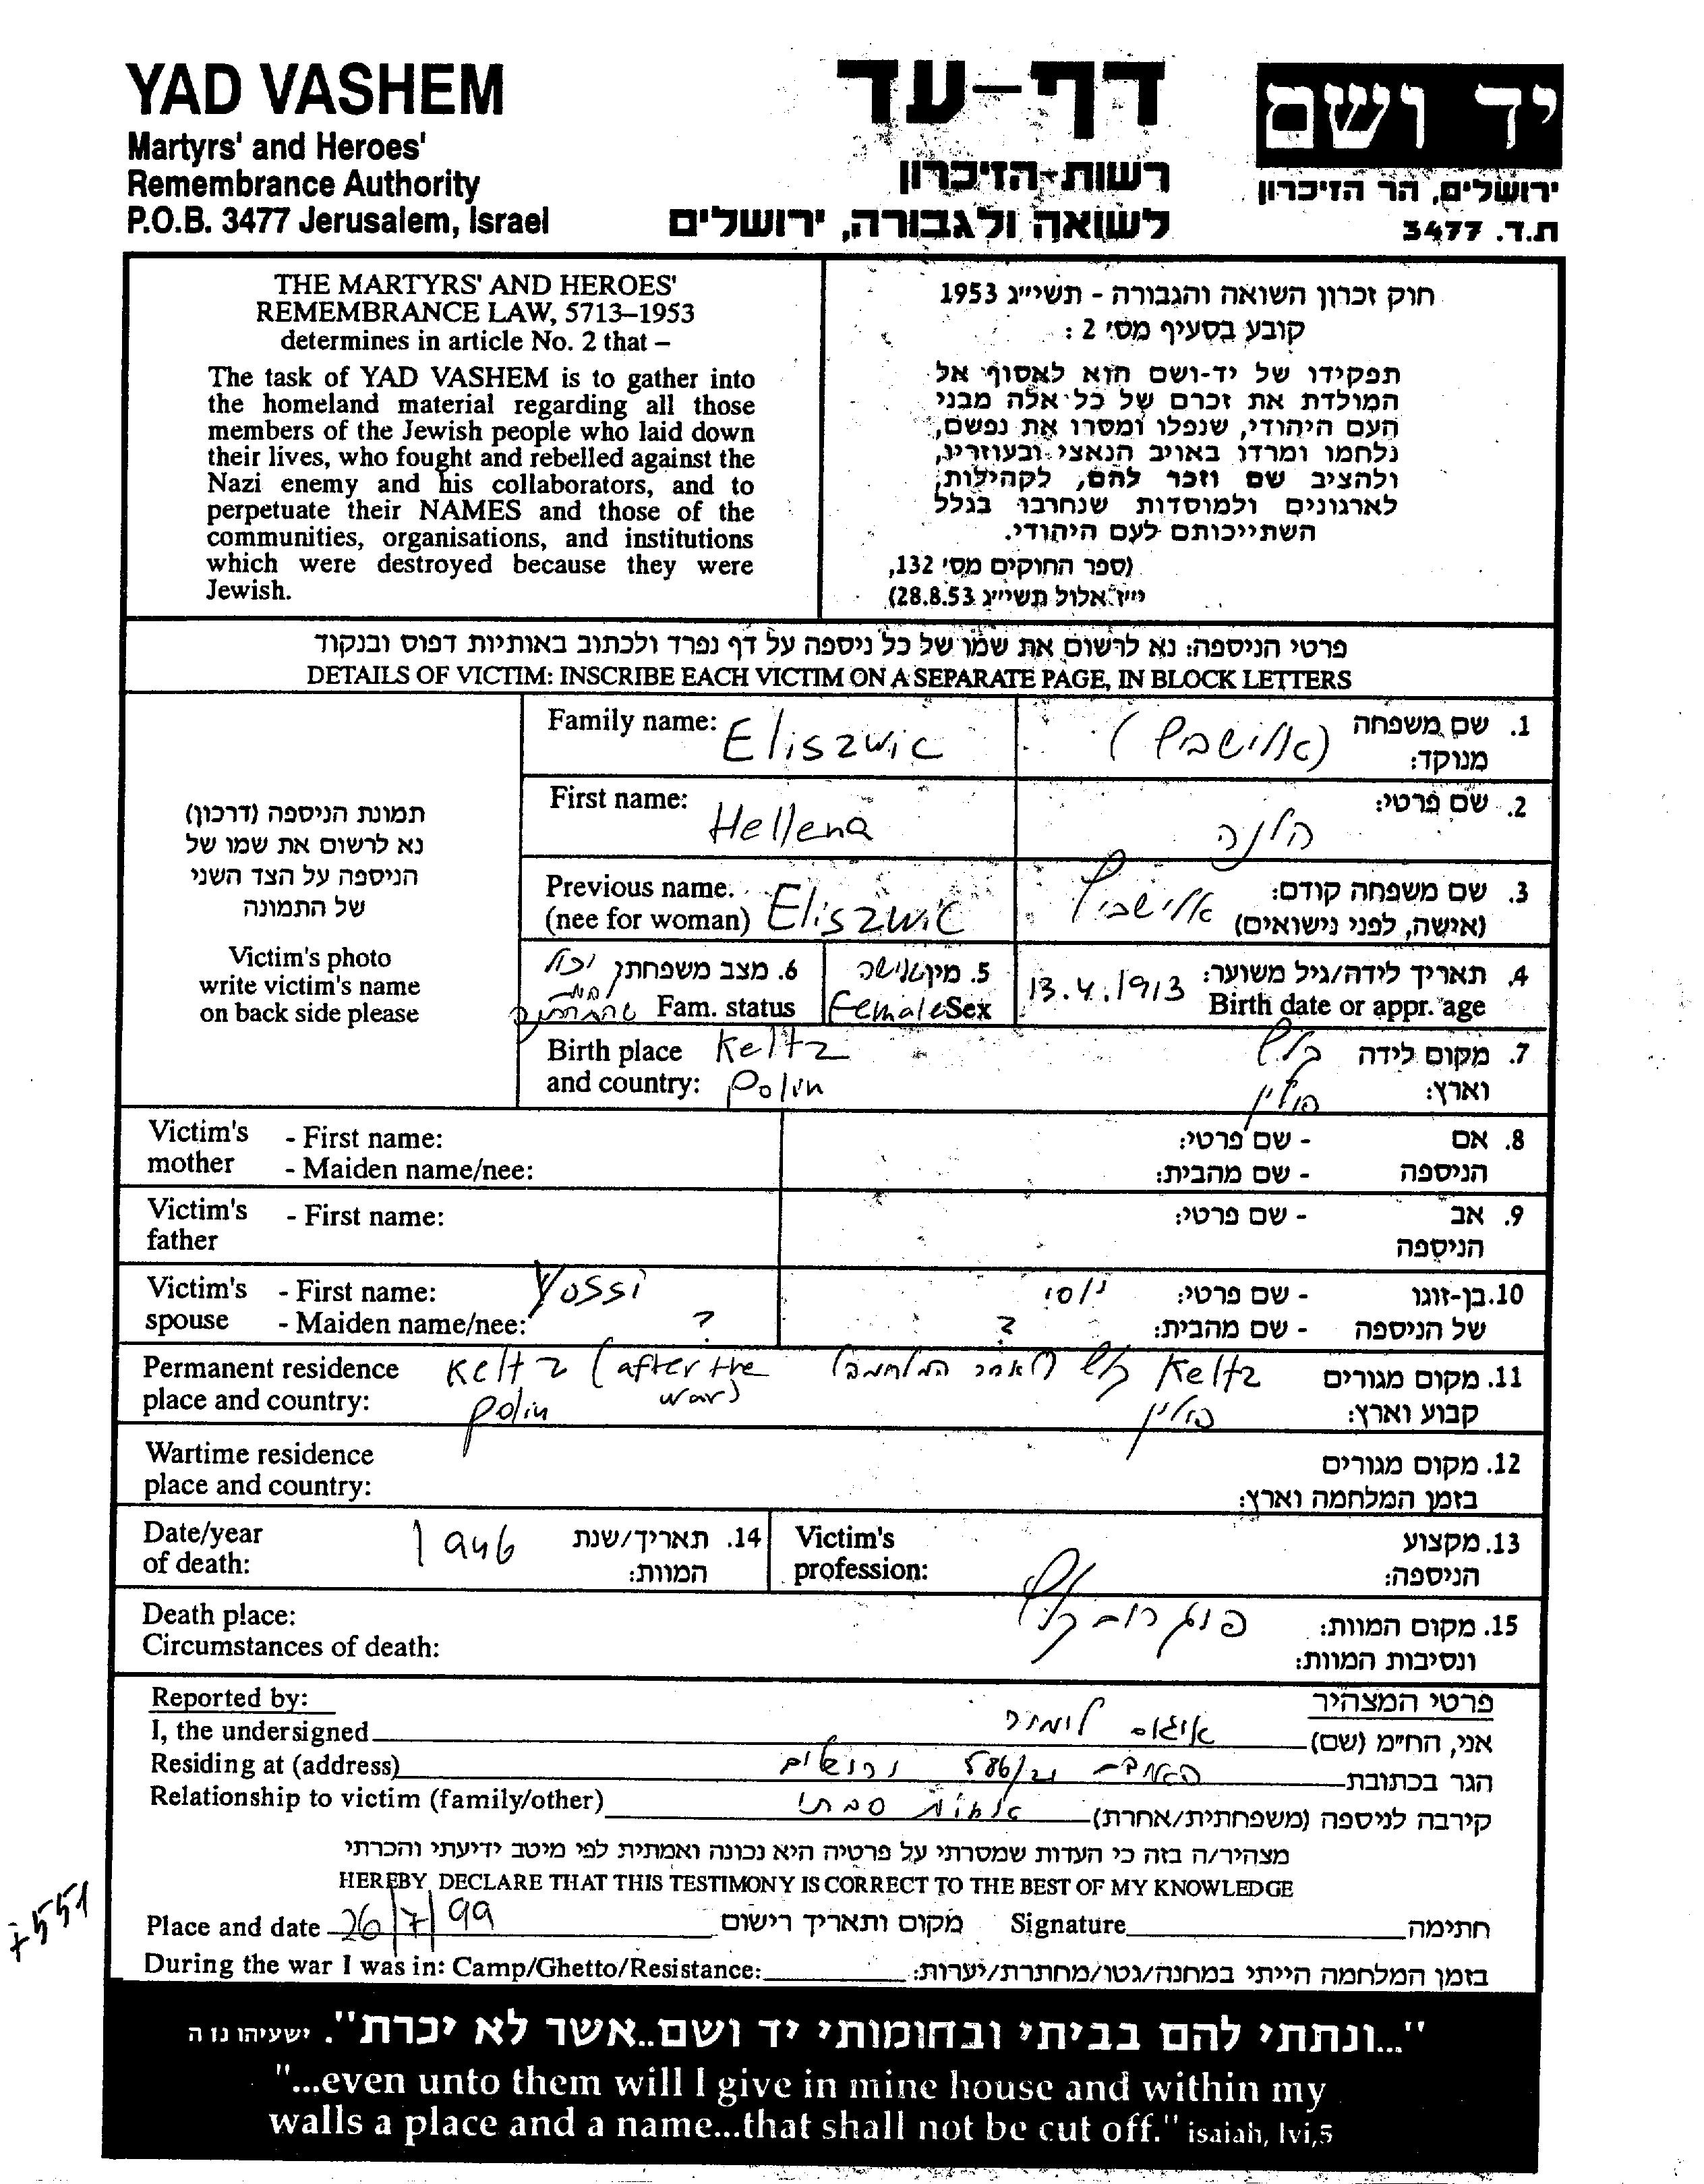 YAD VASHEM
Martyrs' and Heroes'
Remembrance Authority
P.O.B. 3477 Jerusalem, Israel
דף-עד
רשות-הזיכרון
לשואה ולגבורה, ירושלים
יד ושם
ירושלים, הר הזיכרון
ת.ד. 3477
THE MARTYRS' AND HEROES'
REMEMBRANCE LAW, 5713–1953
determines in article No. 2 that –
The task of YAD VASHEM is to gather into
the homeland material regarding all those
members of the Jewish people who laid down
their lives, who fought and rebelled against the
Nazi enemy and his collaborators, and to
perpetuate their NAMES and those of the
communities, organisations, and institutions
which were destroyed because they were
Jewish.
חוק זכרון השואה והגבורה - תשי״ג 1953
קובע בסעיף מס׳ 2 :
תפקידו של יד-ושם הוא לאסוף אל
המולדת את זכרם של כל אלה מבני
העם היהודי, שנפלו ומסרו את נפשם,
נלחמו ומרדו באויב הנאצי ובעוזריו,
ולהציב שם וזכר להם, לקהילות,
לארגונים ולמוסדות שנחרבו בגלל
השתייכותם לעם היהודי.
(ספר החוקים מס׳ 132,
י״ז אלול תשי״ג 28.8.53)
פרטי הניספה: נא לרשום את שמו של כל ניספה על דף נפרד ולכתוב באותיות דפוס ובנקוד
DETAILS OF VICTIM: INSCRIBE EACH VICTIM ON A SEPARATE PAGE, IN BLOCK LETTERS
תמונת הניספה (דרכון)
נא לרשום את שמו של
הניספה על הצד השני
של התמונה
Victim's photo
write victim's name
on back side please
Family name: Eliszwic
1. שם משפחה
מנוקד: (אלישביץ)
First name: Hellena
2. שם פרטי: הלנה
Previous name.
(nee for woman) Eliszwic
3. שם משפחה קודם:
(אישה, לפני נישואים) אלישביץ
4. תאריך לידה/גיל משוער:
13.4.1913 Birth date or appr. age
5. מין אישה
Female Sex
6. מצב משפחתי
Fam. status
Birth place Keltz
and country: Polin
7. מקום לידה קלץ
וארץ: פולין
Victim's - First name:
mother - Maiden name/nee:
8. אם - שם פרטי:
הניספה - שם מהבית:
Victim's - First name:
father
9. אב - שם פרטי:
הניספה
Victim's - First name: Yossi
spouse - Maiden name/nee: ?
10. בן-זוגו - שם פרטי: יוסי
של הניספה - שם מהבית: ?
Permanent residence Keltz (after the
place and country: Polin war)
11. מקום מגורים Keltz קלץ (לאחר המלחמה)
קבוע וארץ: פולין
Wartime residence
place and country:
12. מקום מגורים
בזמן המלחמה וארץ:
Date/year
of death: 1946
14. תאריך/שנת
המוות:
Victim's
profession:
13. מקצוע
הניספה:
Death place:
Circumstances of death:
15. מקום המוות: פוגרום קלץ
ונסיבות המוות:
Reported by:
פרטי המצהיר
I, the undersigned
אני, הח״מ (שם) לימור
Residing at (address)
הגר בכתובת ירושלים
Relationship to victim (family/other)
קירבה לניספה (משפחתית/אחרת) אחות סבתי
מצהיר/ה בזה כי העדות שמסרתי על פרטיה היא נכונה ואמתית לפי מיטב ידיעתי והכרתי
HEREBY DECLARE THAT THIS TESTIMONY IS CORRECT TO THE BEST OF MY KNOWLEDGE
Place and date 26/7/99 מקום ותאריך רישום Signature חתימה
During the war I was in: Camp/Ghetto/Resistance: בזמן המלחמה הייתי במחנה/גטו/מחתרת/יערות:
"...ונתתי להם בביתי ובחומותי יד ושם..אשר לא יכרת". ישעיהו נו ה
"...even unto them will I give in mine house and within my
walls a place and a name...that shall not be cut off." isaiah, lvi,5